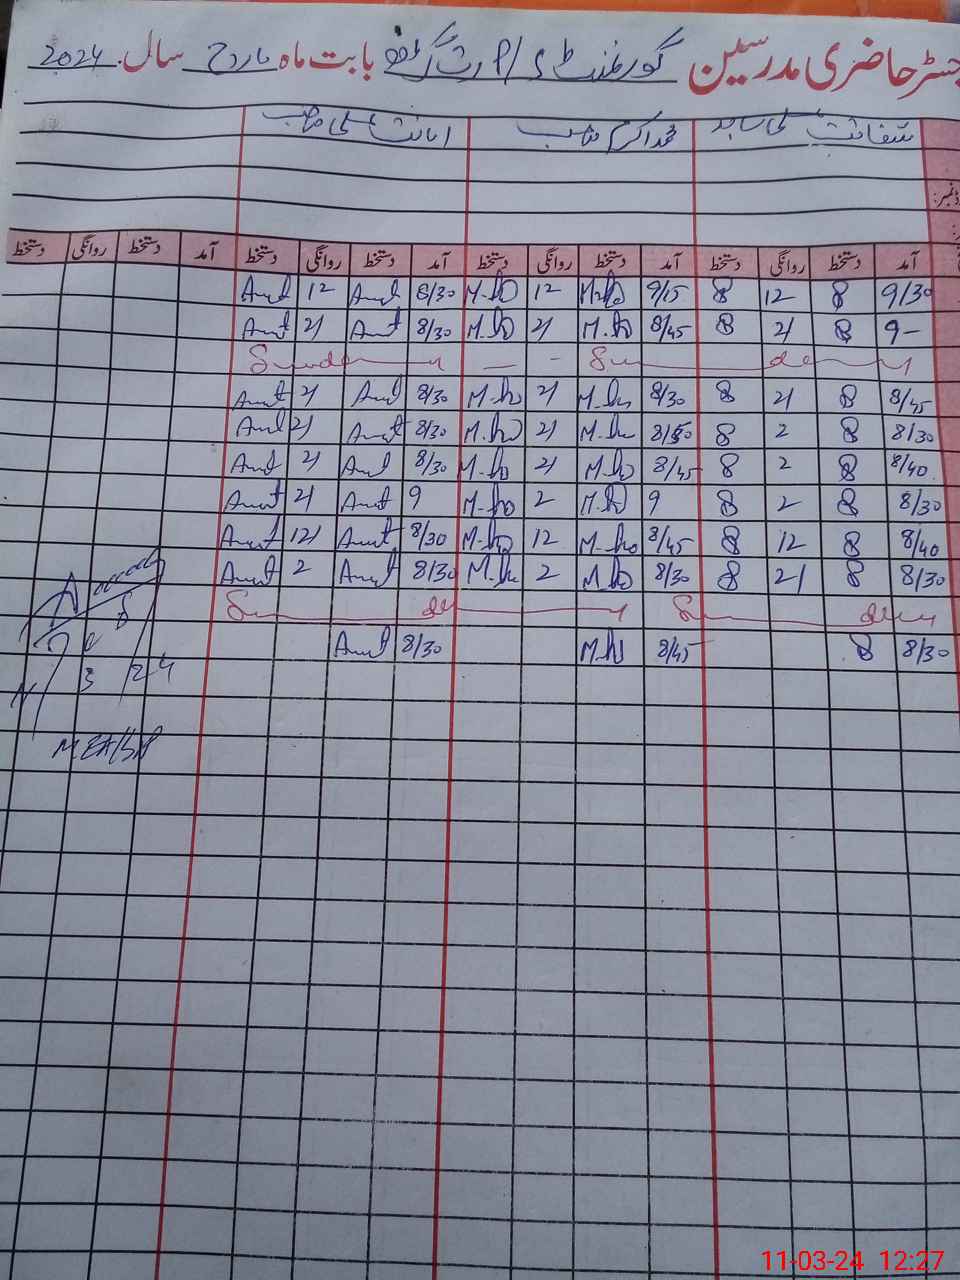 جسٹر حاضری مدرسین گورنمنٹ P/S بابت ماہ مارچ سال 2024
شفاقت علی ساجد محمد اکرم صاحب امانت علی صاحب
آمد دستخط روانگی دستخط آمد دستخط روانگی دستخط آمد دستخط روانگی دستخط آمد دستخط روانگی دستخط
9/30 8 12 8 9/15 M.ho 12 M.ho 8/30 Amt 12 Amt
9- 8 2/ 8 8/45 M.ho 2/ M.ho 8/30 Amt 2/ Amt
Sunday Sunday
8/45 8 2/ 8 8/30 M.ho 2/ M.ho 8/30 Amt 2/ Amt
8/30 8 2 8 8/50 M.ho 2/ M.ho 8/30 Amt 2/ Amt
8/40 8 2 8 8/45 M.ho 2/ M.ho 8/30 Amt 2/ Amt
8/30 8 2 8 9 M.ho 2 M.ho 9 Amt 2/ Amt
8/40 8 12 8 8/45 M.ho 12 M.ho 8/30 Amt 12/ Amt
8/30 8 2/ 8 8/30 M.ho 2 M.ho 8/30 Amt 2 Amt
Sunday Sunday
8/30 8 8/45 M.ho 8/30 Amt
11/3/24
MEA
11-03-24 12:27